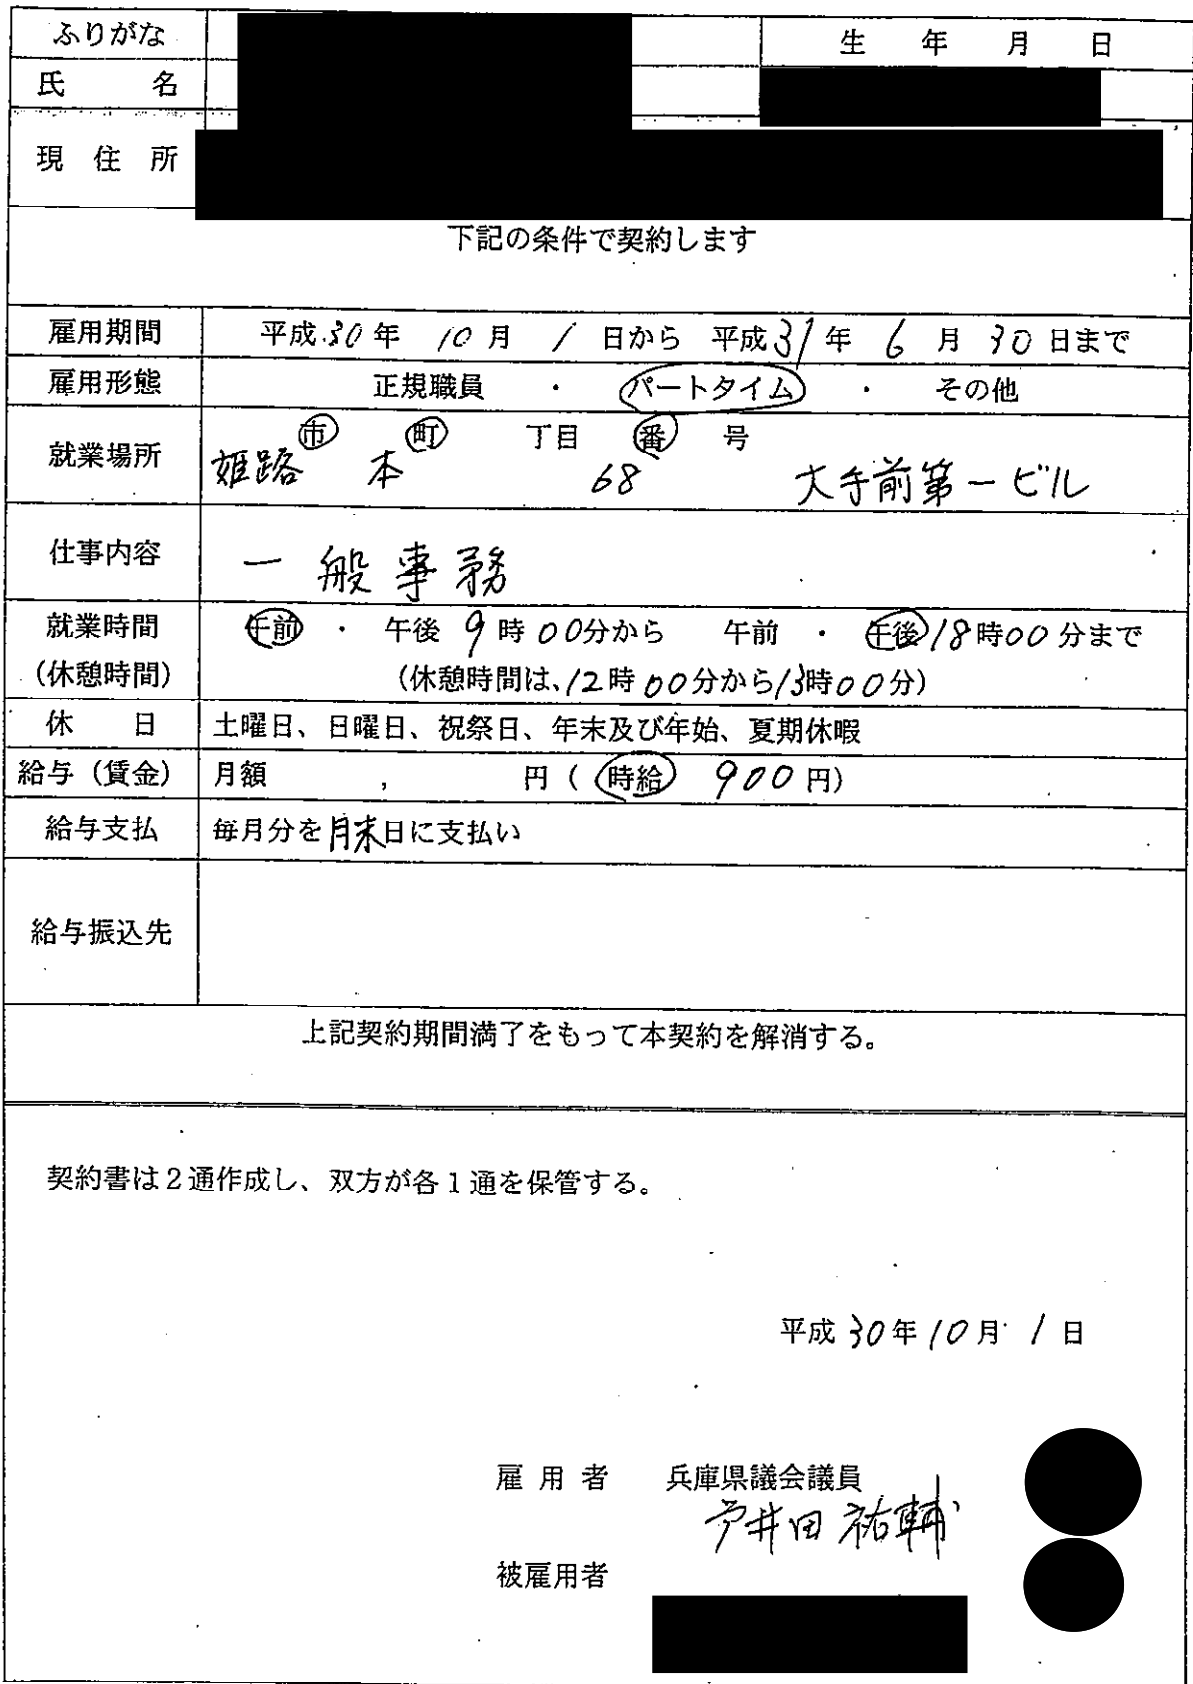 ふりがな 生 年 月 日
氏 名
現 住 所
下記の条件で契約します
雇用期間 平成 30 年 10 月 1 日から 平成 31 年 6 月 30 日まで
雇用形態 正規職員 ・ パートタイム ・ その他
就業場所 市 町 丁目 番 号
姫路 本 68 大手前第一ビル
仕事内容 一般事務
就業時間 午前 ・ 午後 9 時 00分から 午前 ・ 午後 18時00分まで
(休憩時間) (休憩時間は、12時00分から13時00分)
休 日 土曜日、日曜日、祝祭日、年末及び年始、夏期休暇
給与(賃金) 月額 , 円(時給 900円)
給与支払 毎月分を月末日に支払い
給与振込先
上記契約期間満了をもって本契約を解消する。
契約書は2通作成し、双方が各1通を保管する。
平成 30年10月 1 日
雇 用 者 兵庫県議会議員
戸井田祐輔
被雇用者